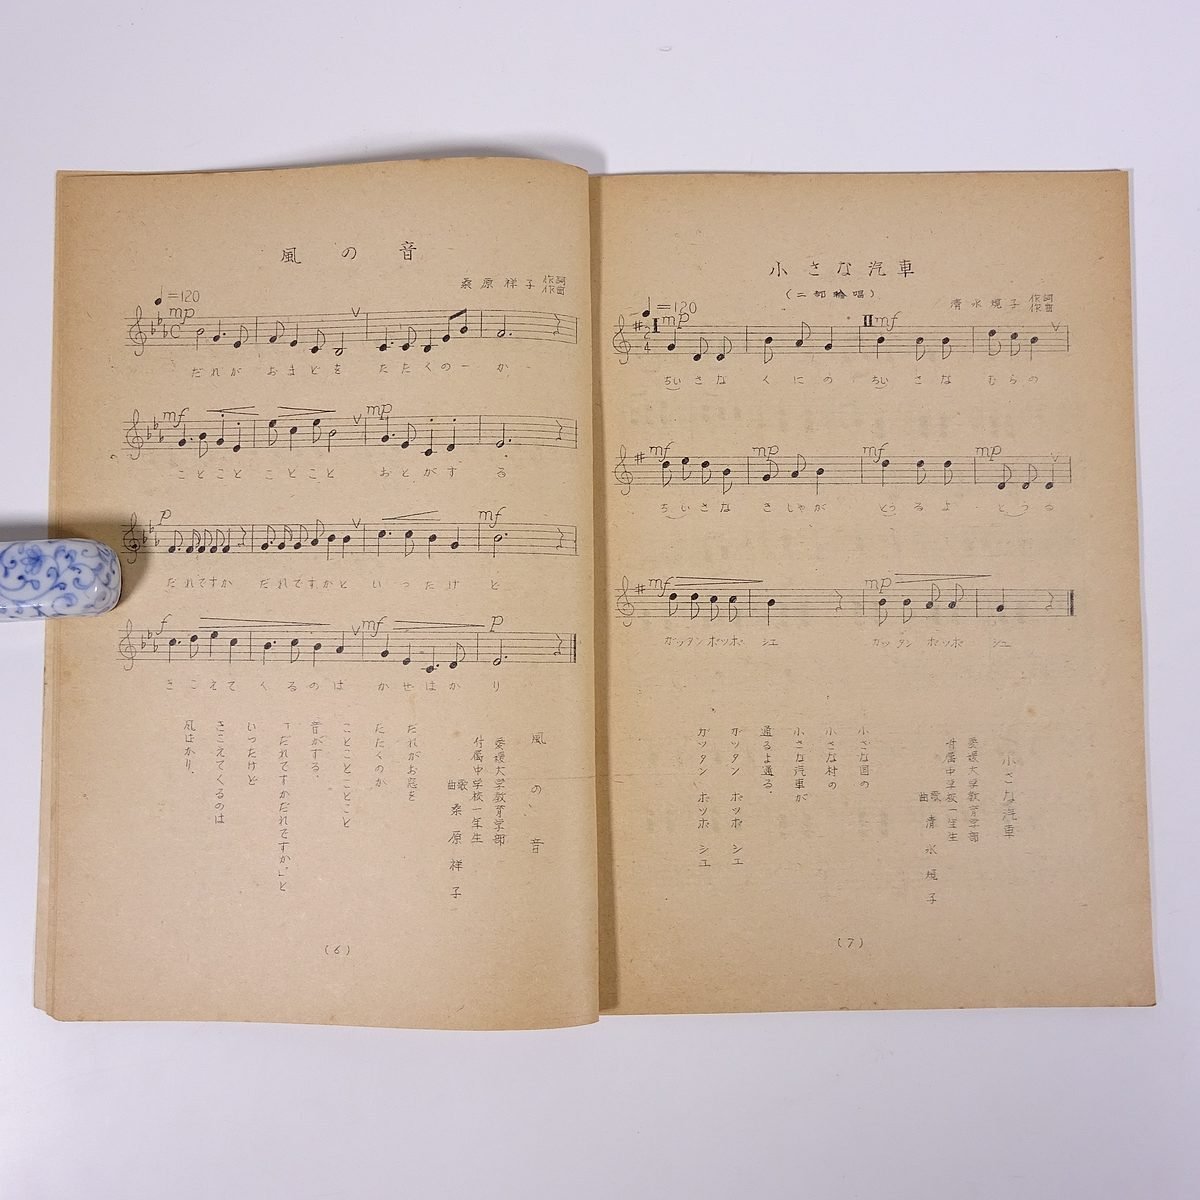 風の音
桑原祥子 作詞 作曲
♩=120
mp
だれが おまどを たたくのーか
mf mp
ことこと ことこと おとがする
p mf
だれですか だれですかと いったけど
f mf p
きこえて くるのは かぜばかり
風の音
愛媛大学教育学部
付属中学校一年生
歌曲 桑原祥子
だれがお窓を
たたくのか
ことことことこと
音がする、
「だれですかだれですか。」と
いったけど
きこえてくるのは
風ばかり、
(6)
小さな汽車
(二部輪唱)
清水規子 作詞 作曲
♩=120
I mp II mf
ちいさな くにの ちいさな むらの
mf mp mf mp
ちいさな きしゃが とうるよ とうる
mf mp
ガッタンホッホ シェ ガッタン ホッホ シェ
小さな汽車
愛媛大学教育学部
付属中学校一年生
歌曲 清水規子
小さな国の
小さな村の
小さな汽車が
通るよ通る、
ガッタン ホッホ シェ
ガッタン ホッホ シェ
(7)